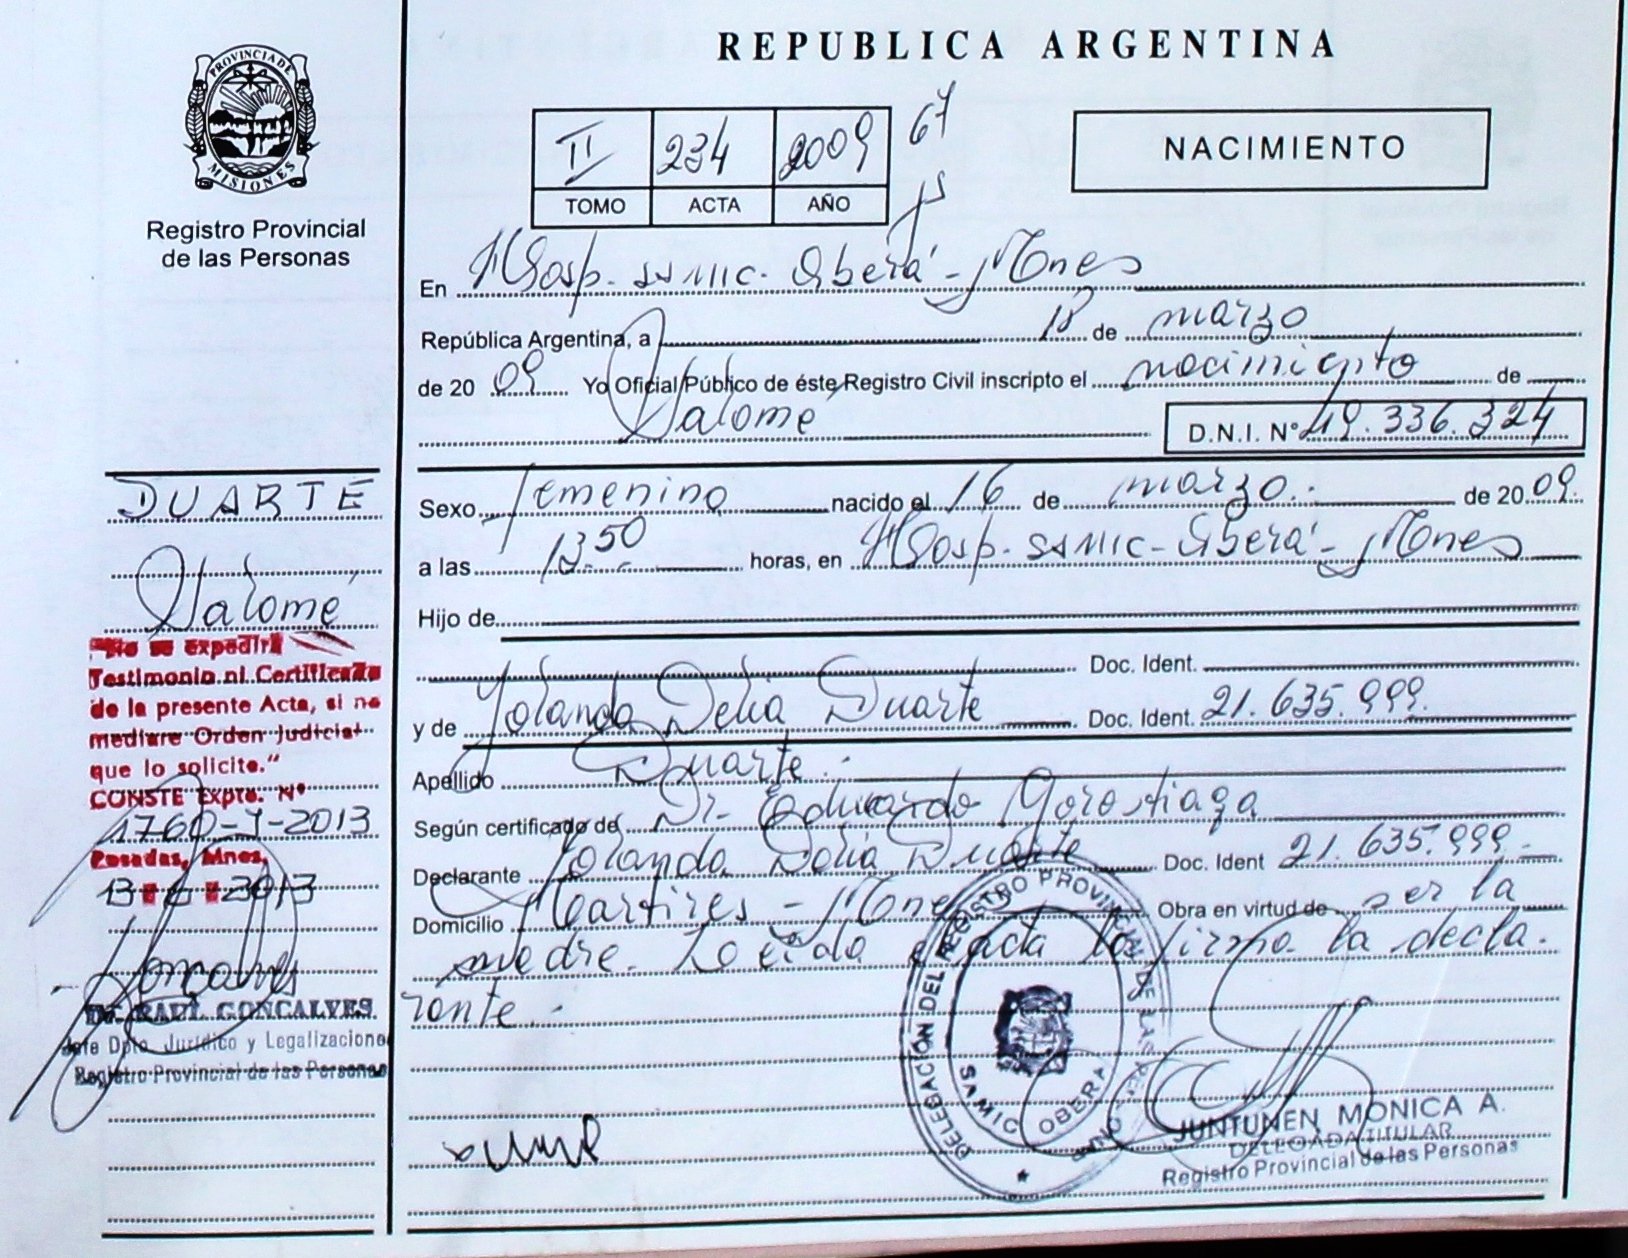 PROVINCIA DE
MISIONES
Registro Provincial
de las Personas
DUARTE
Salomé
"No se expedirá
Testimonio ni Certificado
de la presente Acta, si no
mediare Orden Judicial
que lo solicite."
CONSTE Expte. Nº
1760-Y-2013
Posadas, Mnes,
13 6 2013
Goncalves
Dr. RAUL GONCALVES
Jefe Dpto. Jurídico y Legalizaciones
Registro Provincial de las Personas
REPUBLICA ARGENTINA
II 234 2009 67
TOMO ACTA AÑO
NACIMIENTO
En Hosp. SAMIC - Oberá - Mnes
República Argentina, a 18 de marzo
de 20 09 Yo Oficial Público de éste Registro Civil inscripto el nacimiento de
Salomé D.N.I. Nº 49.336.324
Sexo femenino nacido el 16 de marzo de 20 09
a las 13.50 horas, en Hosp. SAMIC - Oberá - Mnes
Hijo de
Doc. Ident.
y de Yolanda Delia Duarte Doc. Ident. 21.635.999
Apellido Duarte
Según certificado de Dr. Eduardo Gorostiaga
Declarante Yolanda Delia Duarte Doc. Ident 21.635.999
Domicilio Martires - Mnes Obra en virtud de ser la
madre. Leída el acta la firma la decla-
rante.
DELEGACIÓN DEL REGISTRO PROVINCIAL DE LAS PERSONAS
SAMIC OBERA
JUNTUNEN MONICA A.
DELEGADA TITULAR
Registro Provincial de las Personas